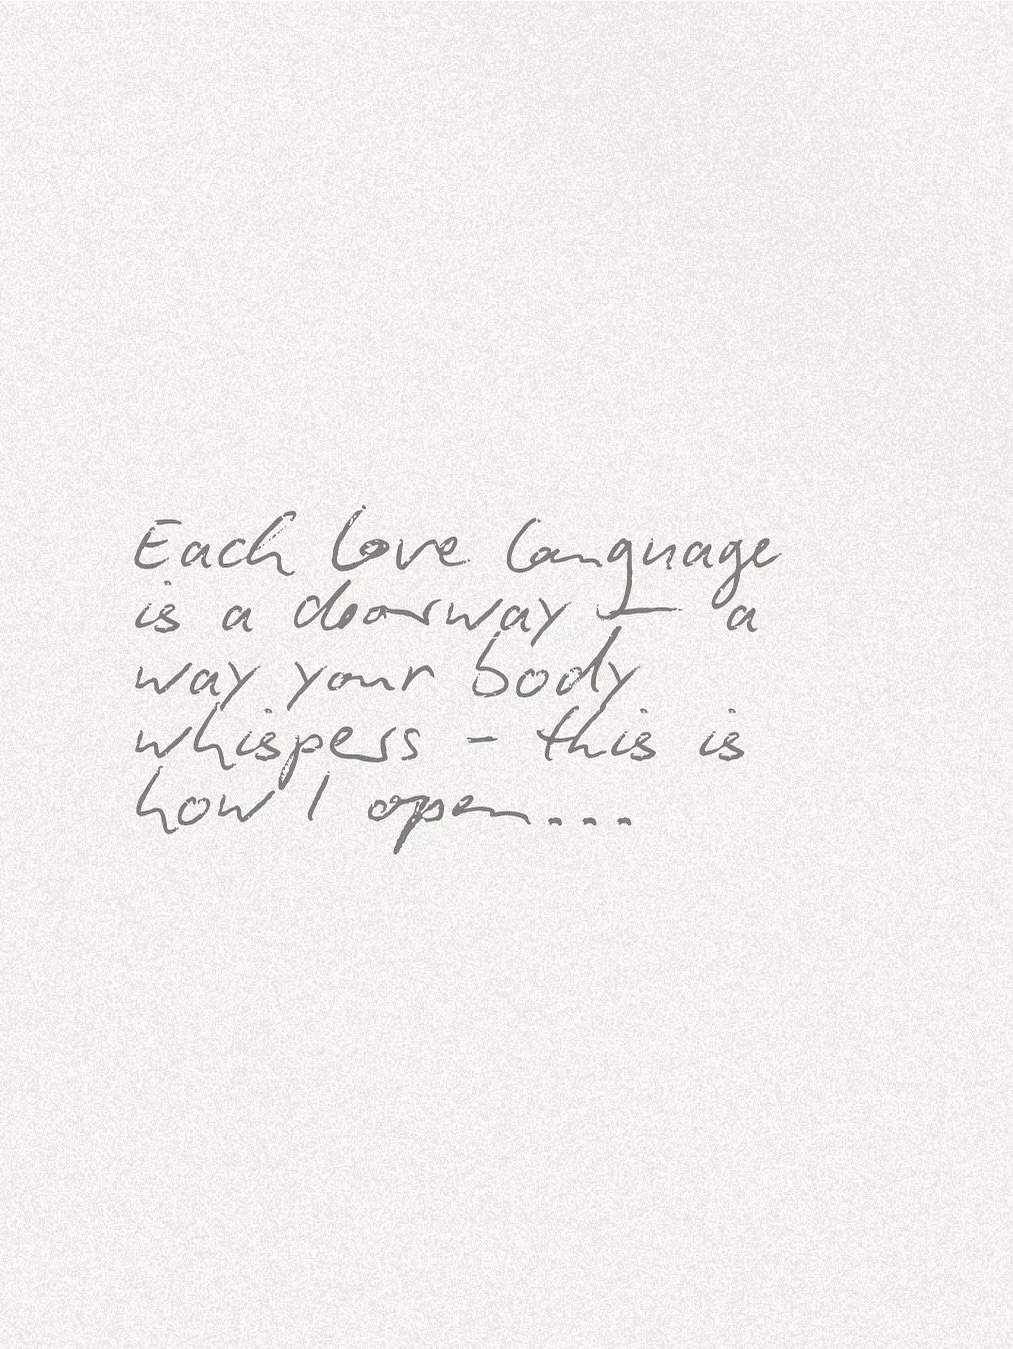 Each love language
is a doorway — a
way your body
whispers - this is
how I open...